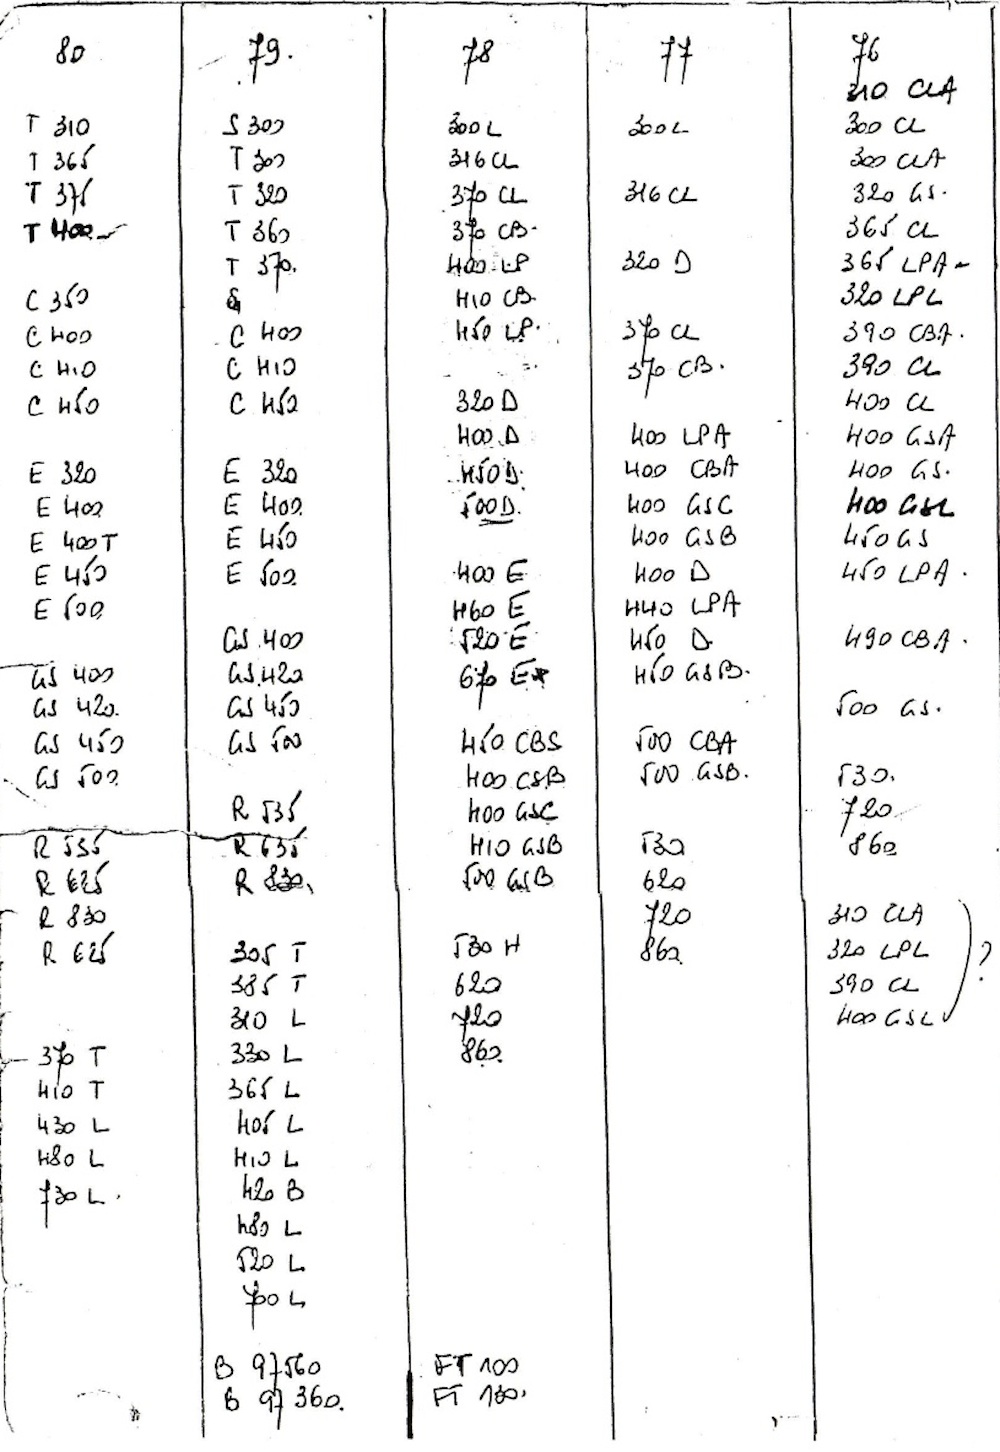 80
T 310
T 365
T 375
T 400
C 350
C 400
C 410
C 450
E 320
E 400
E 400T
E 450
E 500
GS 400
GS 420.
GS 450
GS 500.
R 535
R 625
R 830
R 625
370 T
410 T
430 L
480 L
730 L.
79.
S 300
T 300
T 320
T 360
T 370.
C 400
C 410
C 450
E 320
E 400
E 450
E 500
GS 400
GS 420
GS 450
GS 500
R 535
R 635
R 830.
305 T
385 T
310 L
330 L
365 L
405 L
410 L
420 B
480 L
520 L
700 L
B 97 560
B 97 360.
78
300 L
316 CL
370 CL
370 CB.
400 LP
410 CB.
450 LP.
320 D
400 D
450 D.
500 D.
400 E
460 E
520 E
670 E
450 CBS
400 CSB
400 GSC
410 GSB
500 GSB
530 H
620
720
860
FT 100
FT 130.
77
300 L
316 CL
320 D
370 CL
370 CB.
400 LPA
400 CBA
400 GSC
400 GSB
400 D
440 LPA
450 D.
450 GSB.
500 CBA
500 GSB.
530
620
720
860.
76
310 CLA
300 CL
300 CLA
320 GS.
365 CL
365 LPA
320 LPL
390 CBA.
390 CL
400 CL
400 GSA
400 GS.
400 GSL
450 GS
450 LPA.
490 CBA.
500 GS.
530.
720
860
310 CLA
320 LPL
390 CL
400 GSL
?